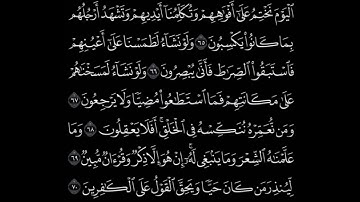 ٱلْيَوْمَ نَخْتِمُ عَلَىٰٓ أَفْوَٰهِهِمْ وَتُكَلِّمُنَآ أَيْدِيهِمْ وَتَشْهَدُ أَرْجُلُهُم
بِمَا كَانُوا۟ يَكْسِبُونَ ٦٥ وَلَوْ نَشَآءُ لَطَمَسْنَا عَلَىٰٓ أَعْيُنِهِمْ
فَٱسْتَبَقُوا۟ ٱلصِّرَٰطَ فَأَنَّىٰ يُبْصِرُونَ ٦٦ وَلَوْ نَشَآءُ لَمَسَخْنَٰهُمْ
عَلَىٰ مَكَانَتِهِمْ فَمَا ٱسْتَطَٰعُوا۟ مُضِيًّا وَلَا يَرْجِعُونَ
٦٧ وَمَن نُّعَمِّرْهُ نُنَكِّسْهُ فِى ٱلْخَلْقِ ۖ أَفَلَا يَعْقِلُونَ ٦٨ وَمَا
عَلَّمْنَٰهُ ٱلشِّعْرَ وَمَا يَنۢبَغِى لَهُۥٓ ۚ إِنْ هُوَ إِلَّا ذِكْرٌ وَقُرْءَانٌ مُّبِينٌ ٦٩
لِّيُنذِرَ مَن كَانَ حَيًّا وَيَحِقَّ ٱلْقَوْلُ عَلَى ٱلْكَٰفِرِينَ ٧٠